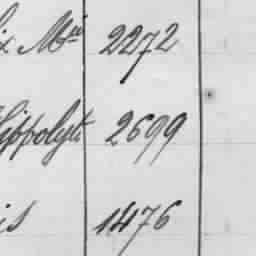 ix Mie 2272
Hippolyte 2699
is 1476